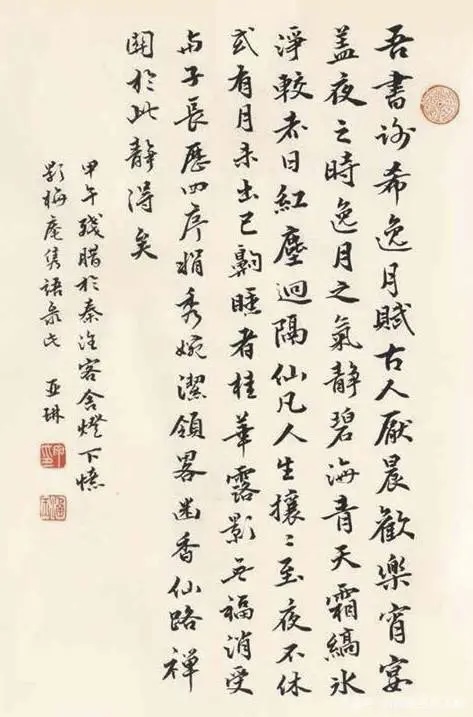 吾書謝希逸月賦古人厭晨歡樂宵宴
盖夜之時逸月之氣靜碧海青天霜縞冰
淨較赤日紅塵迥隔仙凡人生攘〻至夜不休
或有月未出已齁睡者桂華露影无福消受
与子長歷四序娟秀婉潔領畧幽香仙路禪
關於此靜得矣
甲午殘腊於秦淮客舍燈下憶
影梅庵隽語录此 亚琳